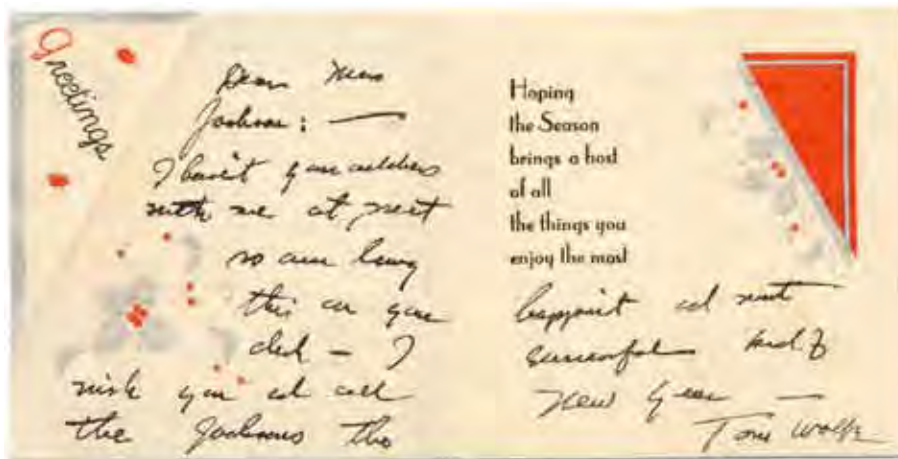 Greetings
Dear Miss
Jackson: —
I haven't your address
with me at present
so am leaving
this on your
desk — I
wish you and all
the Jacksons the
Hoping
the Season
brings a host
of all
the things you
enjoy the most
happiest and most
successful kind of
New Year —
Tom Wolfe